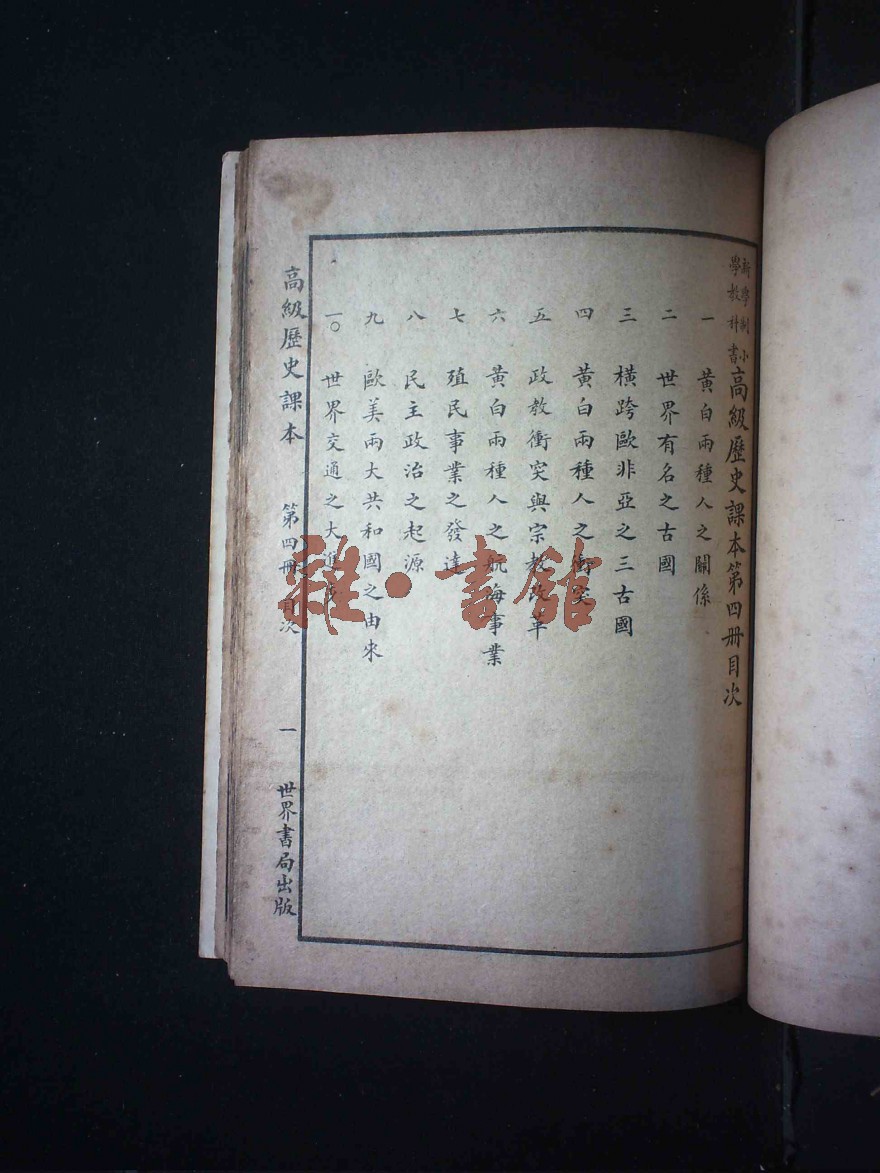 新學制小學教科書高級歷史課本第四册目次
一 黃白兩種人之關係
二 世界有名之古國
三 橫跨歐非亞之三古國
四 黃白兩種人之衝突
五 政教衝突與宗教改革
六 黃白兩種人之航海事業
七 殖民事業之發達
八 民主政治之起源
九 歐美兩大共和國之由來
一〇 世界交通之大進步
高級歷史課本 第四册 目次 一 世界書局出版
雜·書館